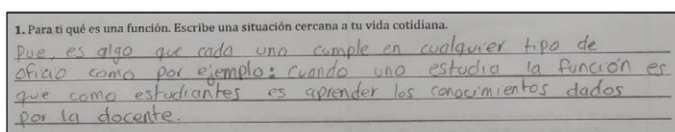 1. Para ti qué es una función. Escribe una situación cercana a tu vida cotidiana.
Pue, es algo que cada uno cumple en cualquier tipo de
oficio como por ejemplo: cuando uno estudia la función es
que como estudiantes es aprender los conocimientos dados
por la docente.